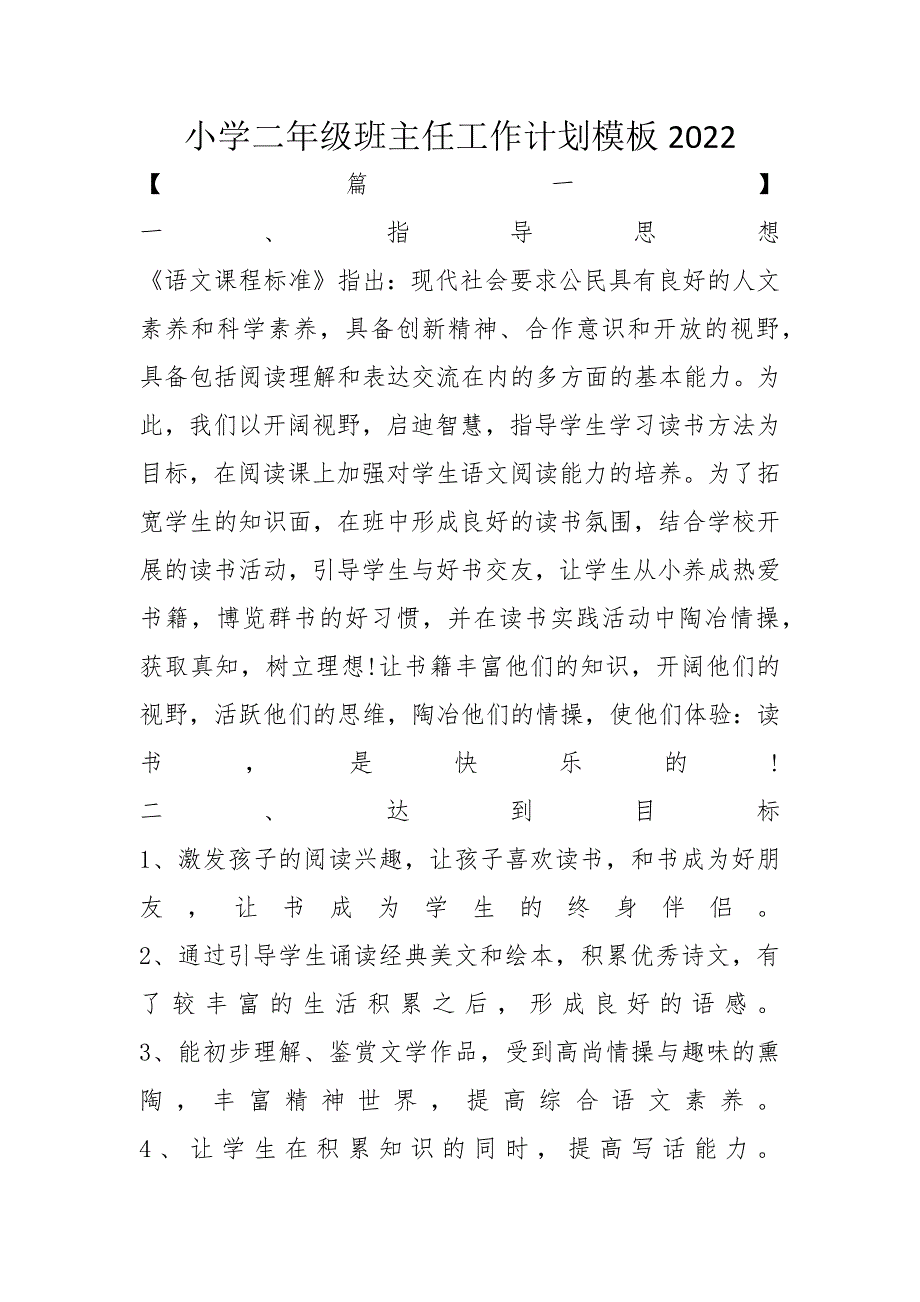 小学二年级班主任工作计划模板 2022
【篇一】
一、指导思想
《语文课程标准》指出：现代社会要求公民具有良好的人文
素养和科学素养，具备创新精神、合作意识和开放的视野，
具备包括阅读理解和表达交流在内的多方面的基本能力。为
此，我们以开阔视野，启迪智慧，指导学生学习读书方法为
目标，在阅读课上加强对学生语文阅读能力的培养。为了拓
宽学生的知识面，在班中形成良好的读书氛围，结合学校开
展的读书活动，引导学生与好书交友，让学生从小养成热爱
书籍，博览群书的好习惯，并在读书实践活动中陶冶情操，
获取真知，树立理想!让书籍丰富他们的知识，开阔他们的
视野，活跃他们的思维，陶冶他们的情操，使他们体验：读
书，是快乐的!
二、达到目标
1、激发孩子的阅读兴趣，让孩子喜欢读书，和书成为好朋
友，让书成为学生的终身伴侣。
2、通过引导学生诵读经典美文和绘本，积累优秀诗文，有
了较丰富的生活积累之后，形成良好的语感。
3、能初步理解、鉴赏文学作品，受到高尚情操与趣味的熏
陶，丰富精神世界，提高综合语文素养。
4、让学生在积累知识的同时，提高写话能力。